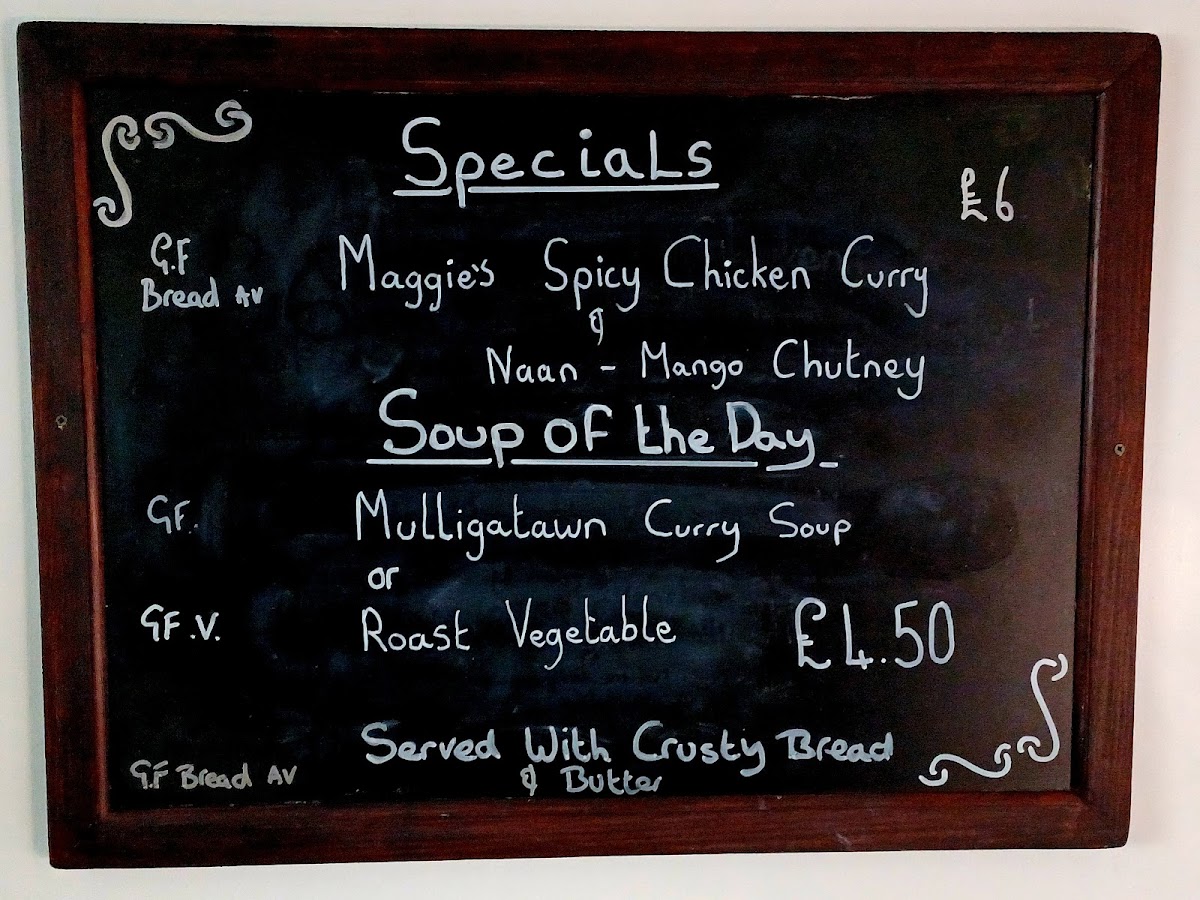 Specials
£6
G.F
Bread AV
Maggie's Spicy Chicken Curry
&
Naan - Mango Chutney
Soup of the Day
GF.
Mulligatawn Curry Soup
or
GF.V.
Roast Vegetable £4.50
Served With Crusty Bread
& Butter
G.F Bread AV